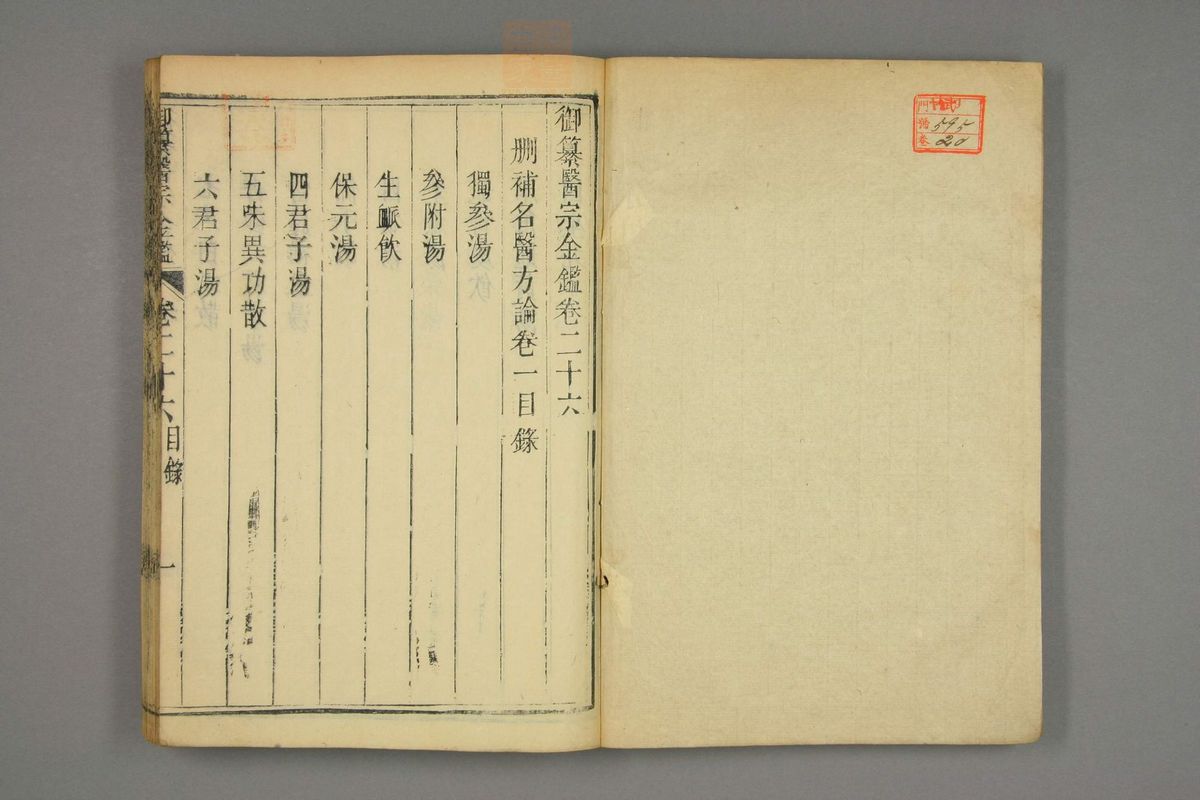 御纂醫宗金鑑卷二十六
刪補名醫方論卷一目錄
獨參湯
參附湯
生脈飲
保元湯
四君子湯
五味異功散
六君子湯
御纂醫宗金鑑 卷二十六目錄 一
門
號 595
卷 20